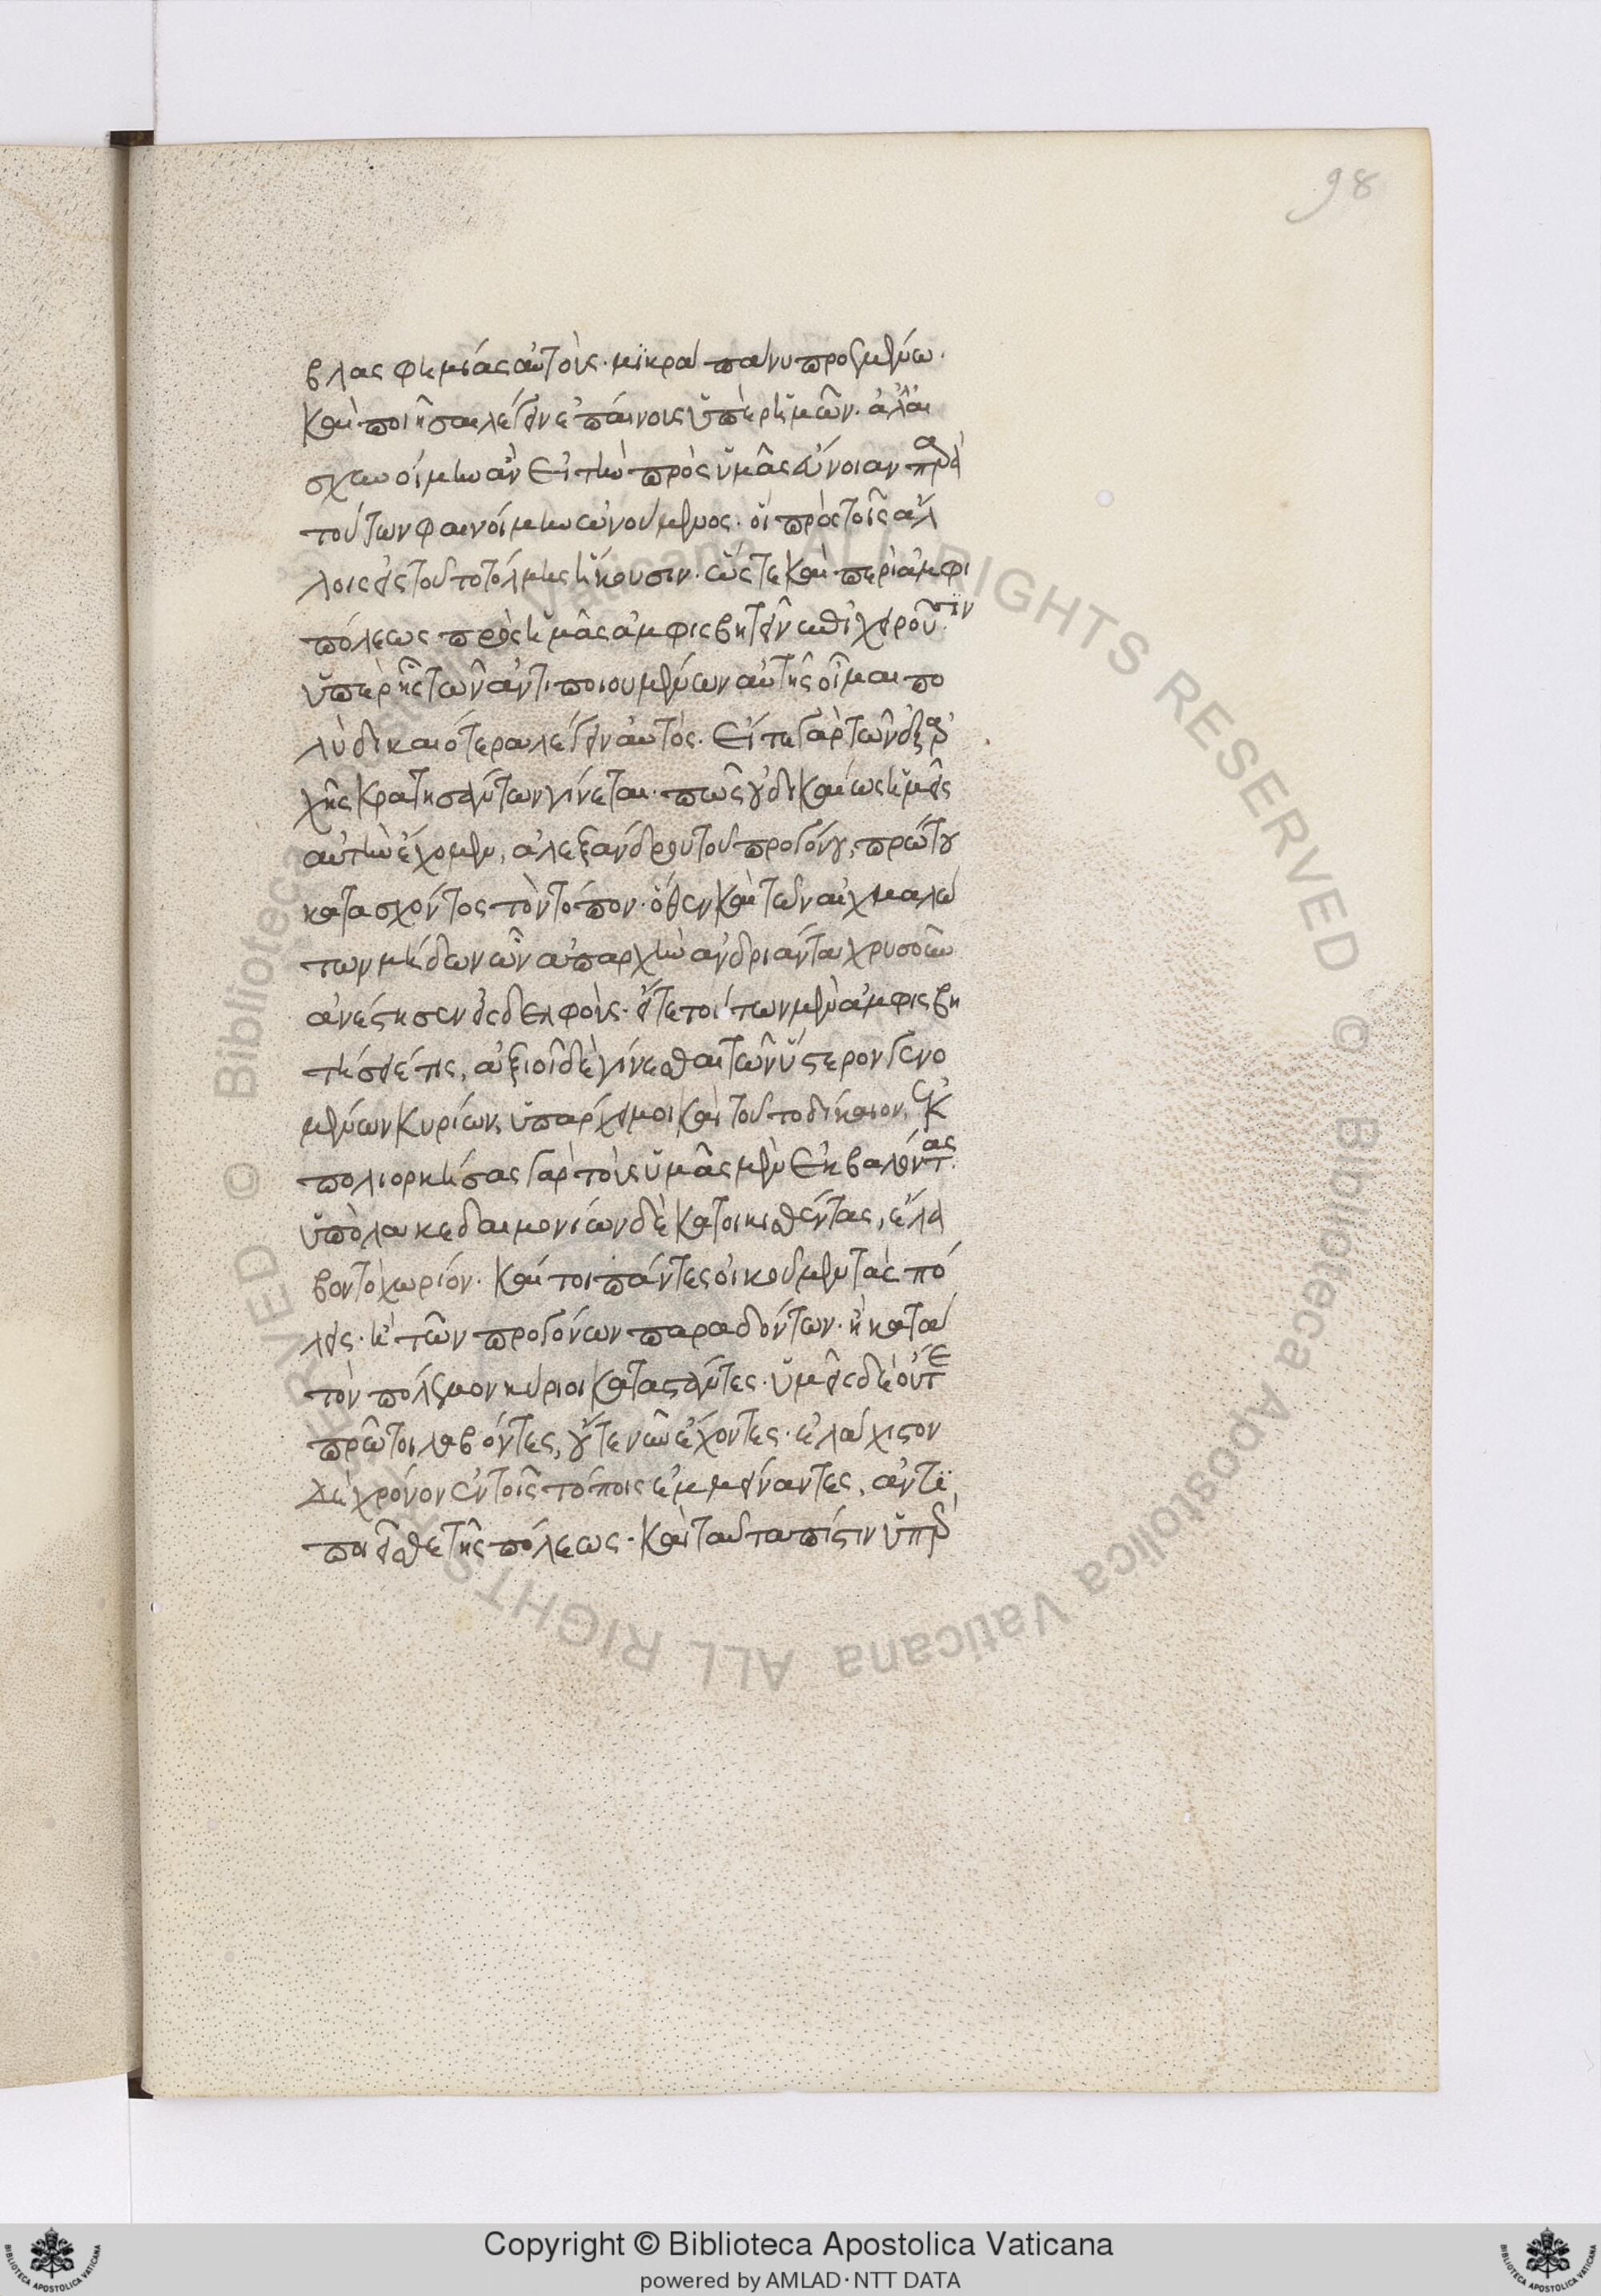 98
βλασφημίας αὐτοὺς. μϊκρὰ πάνυ προζημιῶ.
καὶ ποιήσαι λέγειν ἐπαίνοις ὑπὲρ ἡμῶν. ἀλλ' αἰ
σχυνοίμην ἂν εἰ τὴν πρὸς ὑμᾶς εὔνοιαν παρὰ
τούτων φαινοίμην ὠνούμενος. οἳ πρὸς τοῖς ἄλ
λοις εἰς τοῦτο τόλμης ἥκουσιν. ὥστε καὶ περὶ ἀμφι
πόλεως πρὸς ἡμᾶς ἀμφισβητεῖν ἐπιχειροῦσϊν.
ὑπὲρ ἧς τῶν ἀντιποιουμένων αὐτῆς οἶμαι πο
λὺ δικαιότερα λέγειν αὐτός. εἴτε γὰρ τῶν ἐξαρ
χῆς κρατησάντων γίνεται. πῶς οὐ δικαίως ἡμεῖς
αὐτὴν ἔχομεν, ἀλεξάνδρου τοῦ προγόνου, πρώτου
κατασχόντος τὸν τόπον. ὅθεν καὶ τῶν αἰχμαλώ
των μήδων ὧν ἀπαρχὴν ἀνδριάντα χρυσοῦν
ἀνέστησεν εἰς δελφοὺς. εἴτε τούτων μὲν ἀμφισβη
τήσειέ τις, ἀξιοῖ δὲ γίνεσθαι τῶν ὕστερον γενο
μένων κυρίων, ὑπάρχει μοι καὶ τοῦτο δίκαιον, ἐκ
πολιορκήσας γὰρ τοὺς ὑμᾶς μὲν ἐκβαλόντας.
ὑπὸ λακεδαιμονίων δὲ κατοικισθέντας, ἔλα
βον τὸ χωρίον. καί τοι πάντες οἰκοῦμεν τὰς πό
λεις. ἢ τῶν προγόνων παραδόντων. ἢ κατὰ
τὸν πόλεμον κύριοι καταστάντες. ὑμεῖς δὲ οὔτε
πρῶτοι λαβόντες, οὔτε νῦν ἔχοντες. ἐλάχιστον
δὲ χρόνον ἐν τοῖς τόποις ἐμμείναντες, ἀντϊ
ποιεῖσθε τῆς πόλεως. καὶ ταῦτα πίστιν ὑπὲρ
Copyright © Biblioteca Apostolica Vaticana
powered by AMLAD·NTT DATA